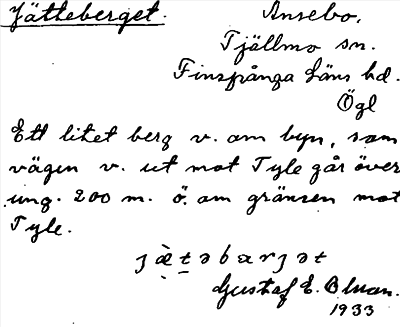 Jätteberget.
Ansebo,
Tjällmo sn.
Finspånga läns hd.
Ögl
Ett litet berg v. om byn, som
vägen v. ut mot Tyle går över
ung. 200 m. ö. om gränsen mot
Tyle.
Gustaf E. Olman.
1933